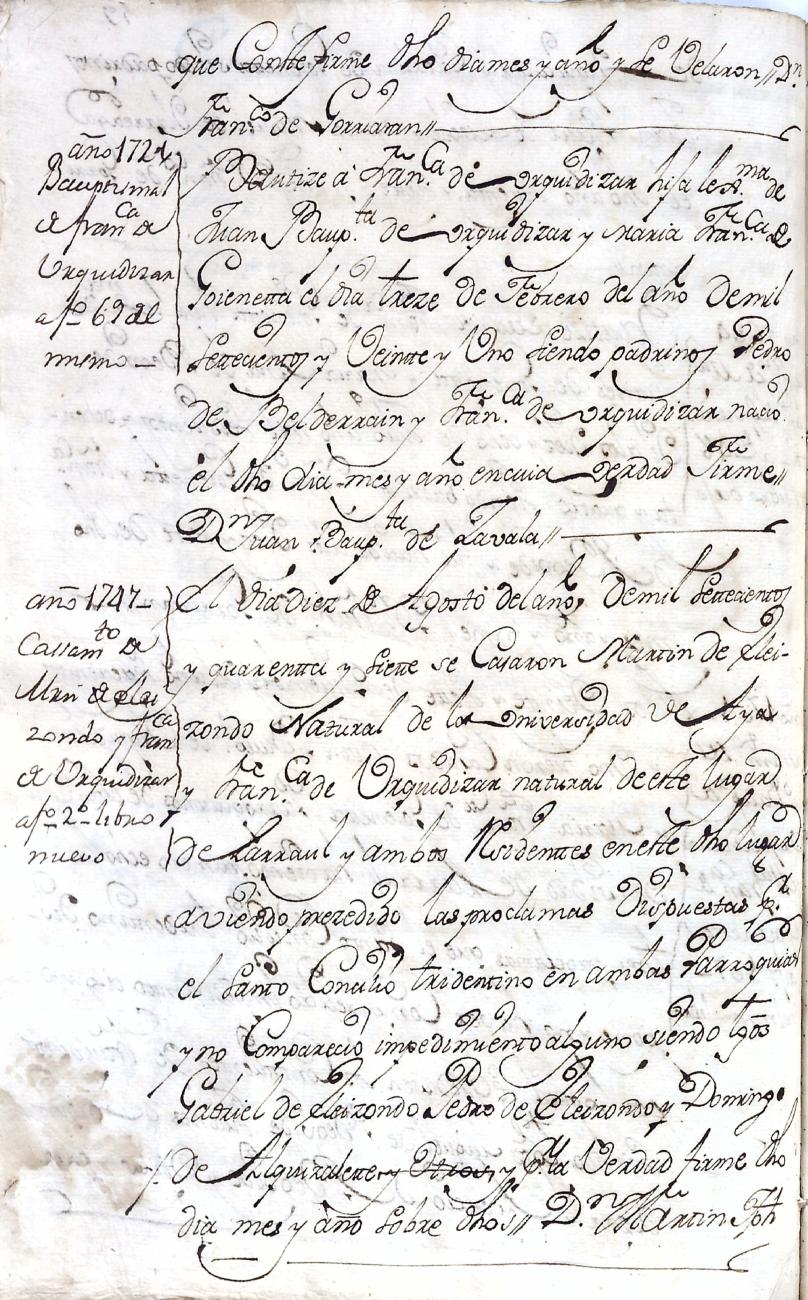 que Conste firme dho dia mes y año y se Velaron // Dn.
Franco. de Gorriaran //
año 1721
Bauptismal
de franca de
Urquidizar
a fo. 69 del
mismo
Bautize a Franca. de Urquidizar hija lexma de
Juan Baupta. de Urquidizar y Maria Franca. de
Goienetta el dia treze de Febrero del año de mil
Settecientos y Veintte y Uno siendo padrinos Pedro
de Belderrain y Franca. de Urquidizar nacio
el dho dia mes y año en cuia verdad Firme //
Dn Juan Baupta. de Zavala //
año 1747
Cassamto de
Mrn de Elei
zondo y franca
de Urquidizar
a fo. 2o. libro
nuevo
El dia diez de Agosto del año, de mil settecientos
y quarentta y siette se Casaron Martin de Elei-
zondo Natural de la Universidad de Aya
y Franca. de Urquidizar natural de este lugar
de Larraul y ambos Residenttes en este dho lugar
aviendo prezedido las proclamas Dispuestas pr.
el Santo Concilio tridentino en ambas Parroquias
y no Comparecio impedimento alguno siendo tgos
Gabriel de Eleizondo Pedro de Eleizondo y Domingo
de Alquizalette y Otros y pr. la Verdad firme dho
dia mes y año sobre dhos // Dn. Martin Jph